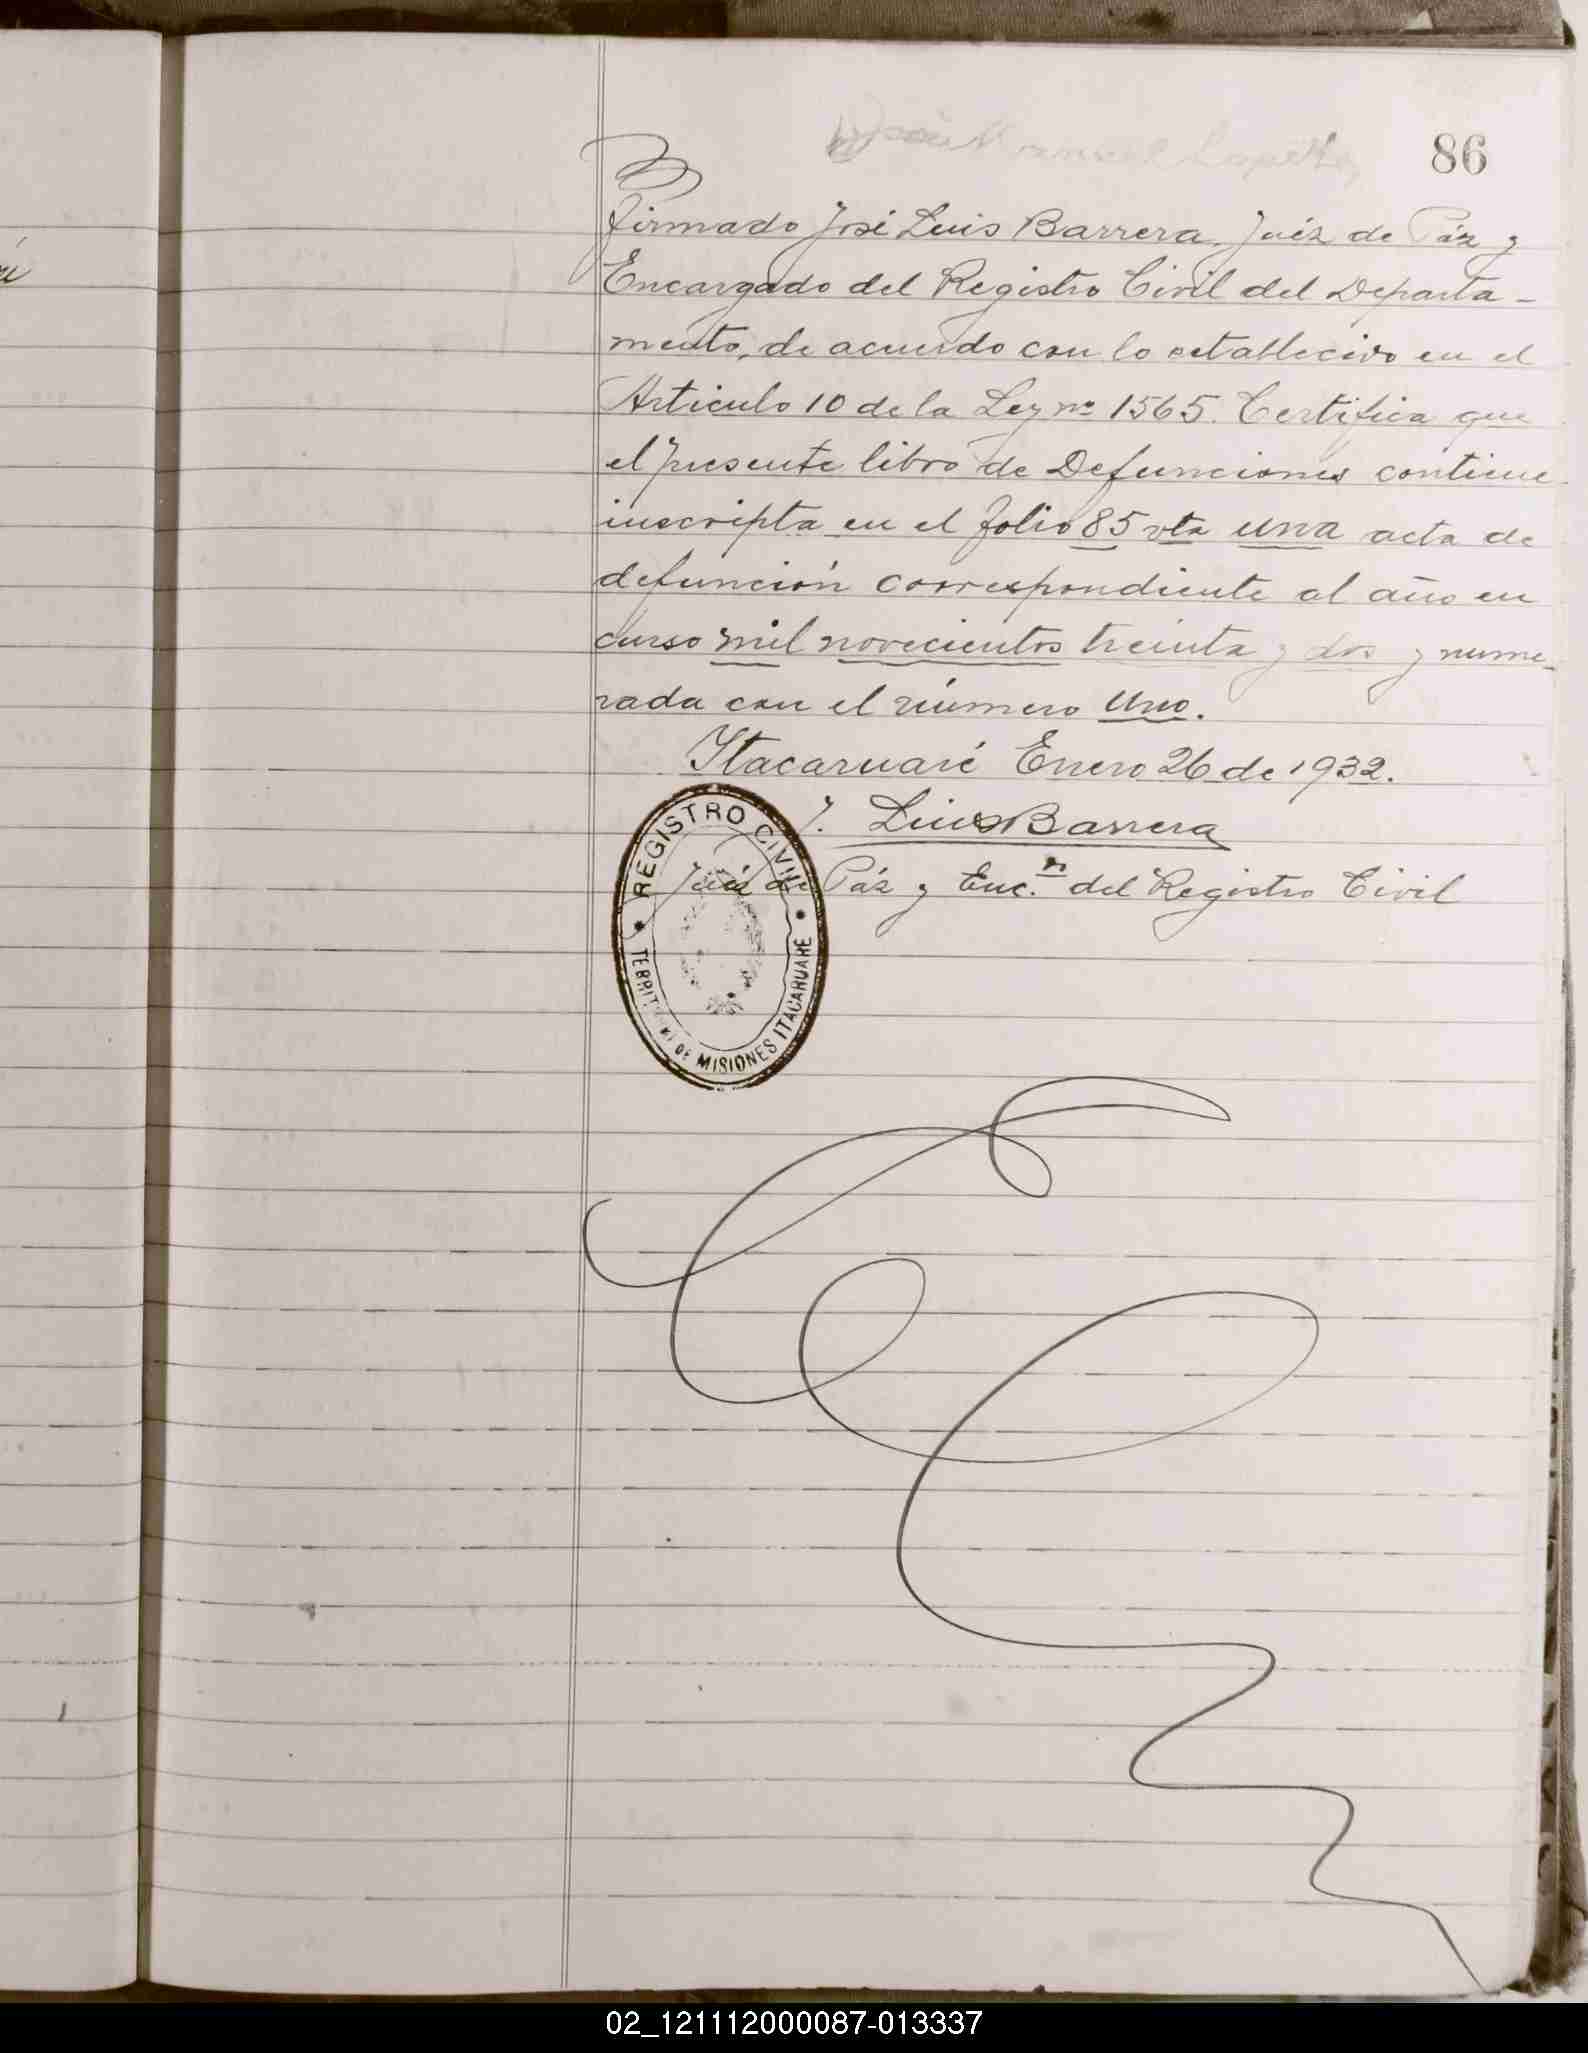 86
firmado José Luis Barrera, Juéz de Páz y
Encargado del Registro Civil del Departa-
mento, de acuerdo con lo establecido en el
Articulo 10 de la Ley nº 1565. Certifica que
el presente libro de Defunciones contiene
inscripta en el folio 85 vta una acta de
defunción correspondiente al año en
curso mil novecientos treinta y dos y nume-
rada con el número uno.
Itacaruaré Enero 26 de 1932.
J. Luis Barrera
Juéz de Páz y Enc.º del Registro Civil
REGISTRO CIVIL
TERRITORIO DE MISIONES ITACARUARE
02_121112000087-013337